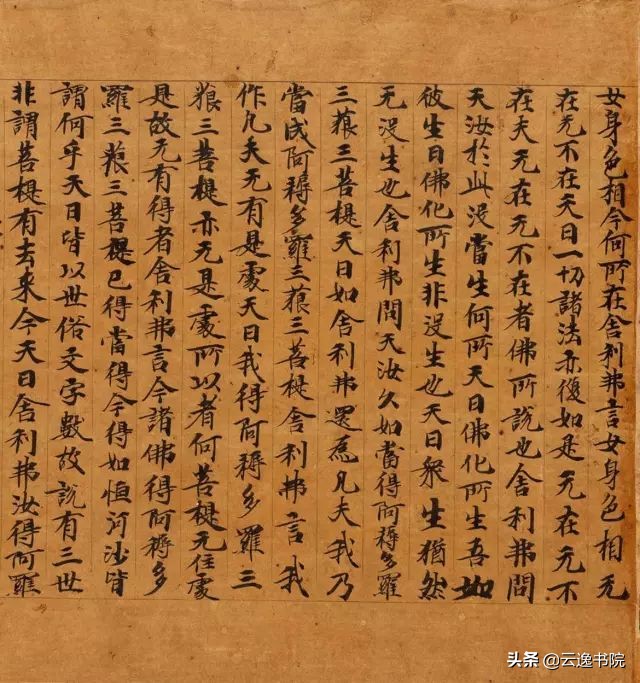 女身色相今何所在舍利弗言女身色相无
在无不在天曰一切諸法亦復如是无在无不
在夫无在无不在者佛所說也舍利弗問
天汝於此沒當生何所天曰佛化所生吾如
彼生曰佛化所生非没生也天曰衆生猶然
无没生也舍利弗問天汝久如當得阿耨多羅
三藐三菩提天曰如舍利弗還爲凡夫我乃
當成阿耨多羅三藐三菩提舍利弗言我
作凡夫无有是處天曰我得阿耨多羅三
藐三菩提亦无是處所以者何菩提无住處
是故无有得者舍利弗言今諸佛得阿耨多
羅三藐三菩提已得當得今得如恒河沙皆
謂何乎天曰皆以世俗文字數故說有三世
非謂菩提有去來今天曰舍利弗汝得阿羅
头条 @云逸书院